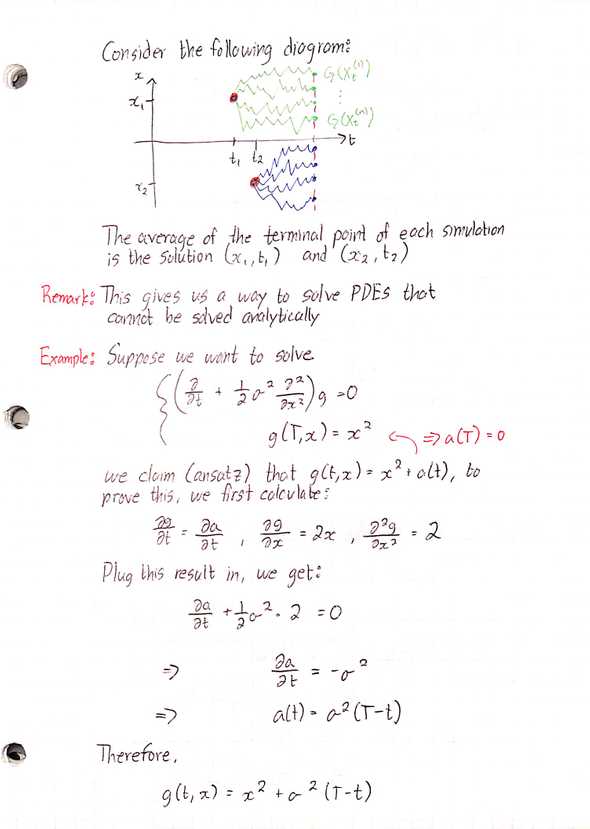 Consider the following diagram:
x
G(X_t^(1))
x₁
⋮
G(X_t^(n))
t₁ t₂ t
x₂
The average of the terminal point of each simulation
is the solution (x₁, t₁) and (x₂, t₂)
Remark: This gives us a way to solve PDEs that
cannot be solved analytically
Example: Suppose we want to solve
{ (∂/∂t + 1/2 σ² ∂²/∂x²) g = 0
g(T,x) = x² ⇒ a(T) = 0
we claim (ansatz) that g(t,x) = x² + a(t), to
prove this, we first calculate:
∂g/∂t = ∂a/∂t , ∂g/∂x = 2x , ∂²g/∂x² = 2
Plug this result in, we get:
∂a/∂t + 1/2 σ² · 2 = 0
⇒ ∂a/∂t = -σ²
⇒ a(t) = σ²(T-t)
Therefore,
g(t,x) = x² + σ²(T-t)